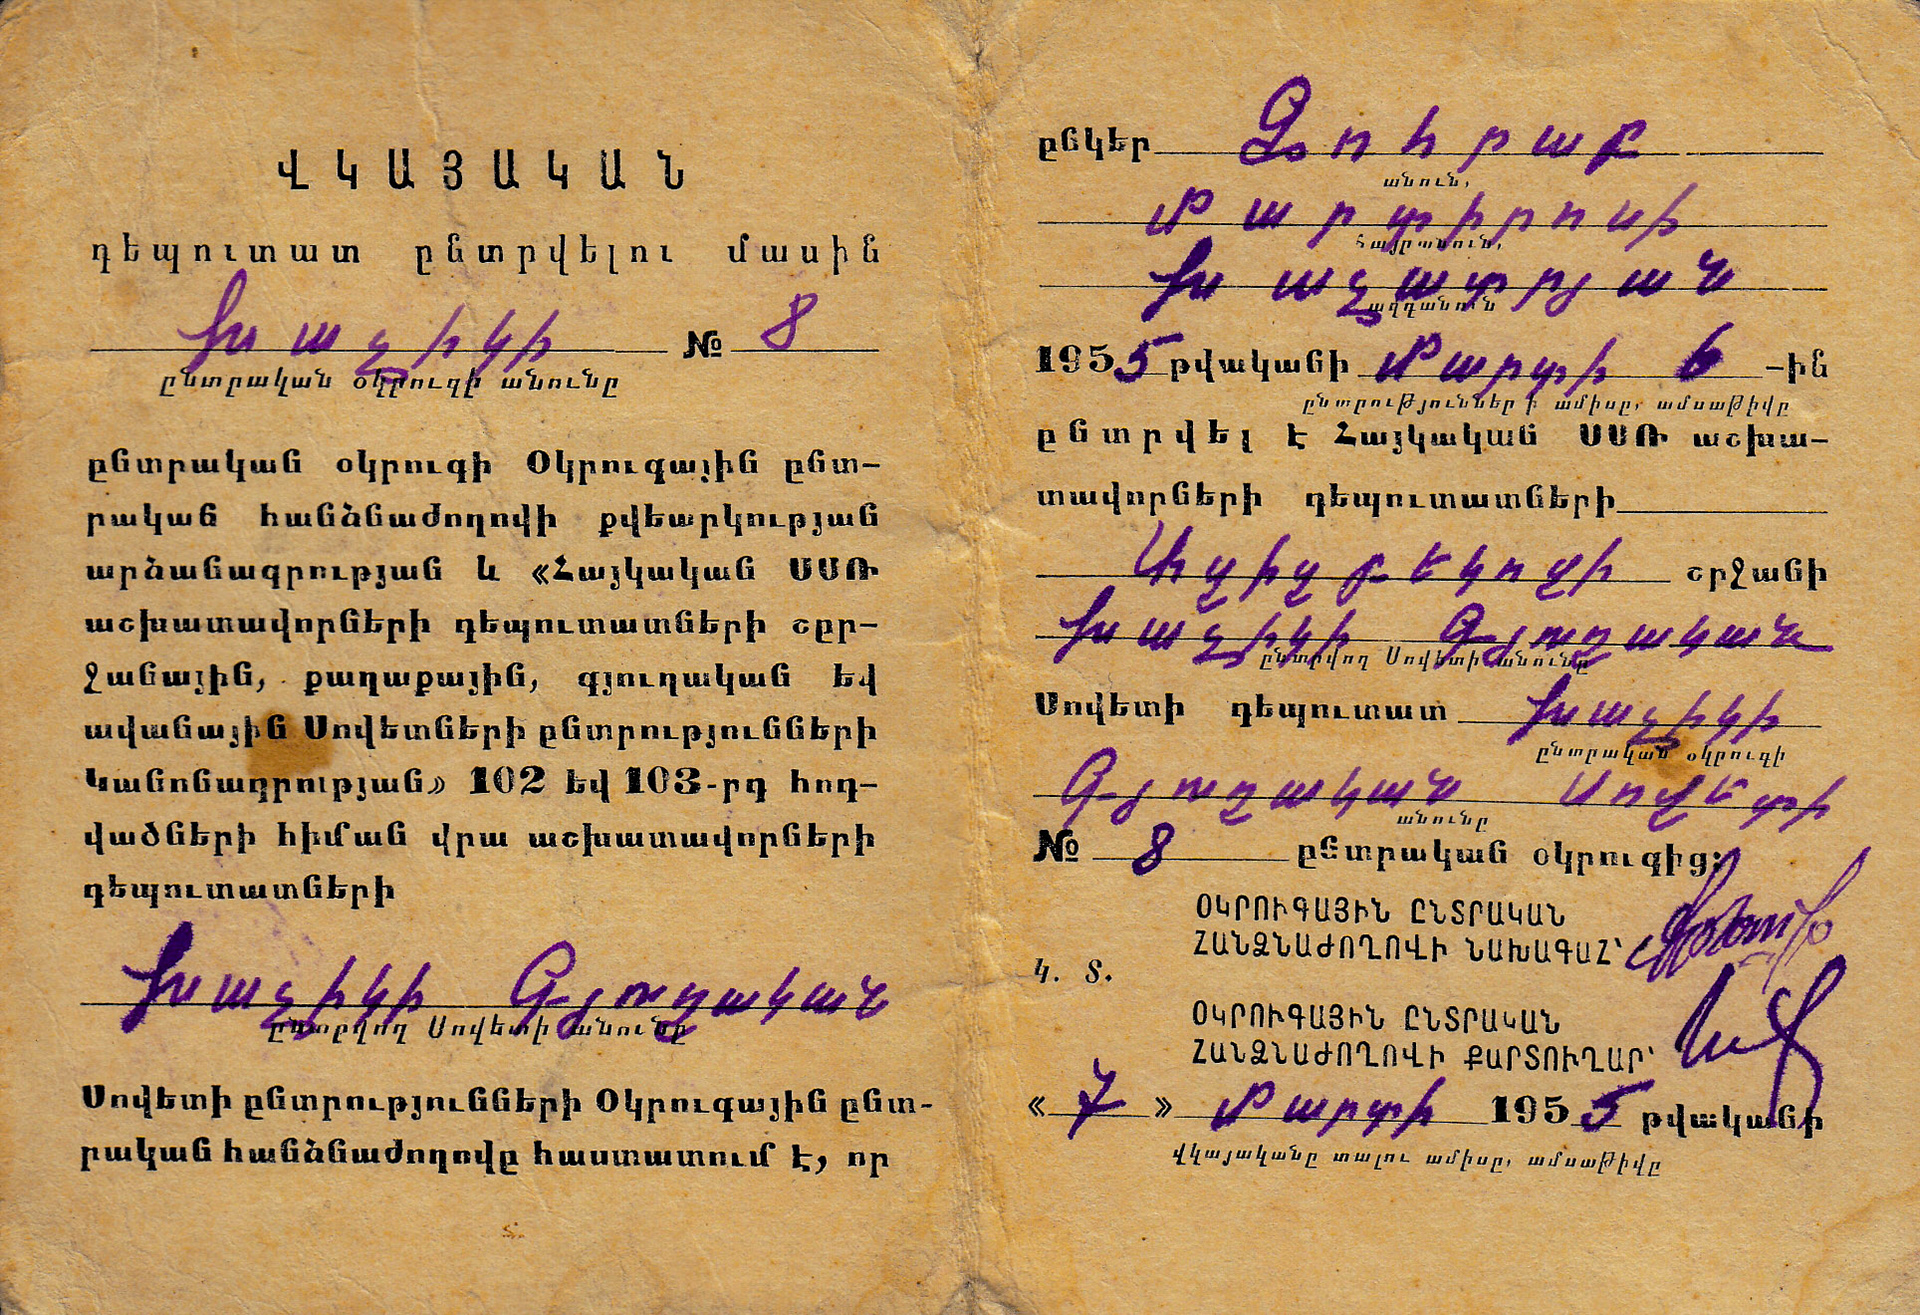 ՎԿԱՅԱԿԱՆ
դեպուտատ ընտրվելու մասին
Խաչիկի № 8
ընտրական օկրուգի անունը
ընտրական օկրուգի Օկրուգային ընտ-
րական հանձնաժողովի քվեարկության
արձանագրության և «Հայկական ՍՍՌ
աշխատավորների դեպուտատների շըր-
ջանային, քաղաքային, գյուղական եվ
ավանային Սովետների ընտրությունների
Կանոնադրության» 102 եվ 103-րդ հոդ-
վածների հիման վրա աշխատավորների
դեպուտատների
Խաչիկի Գյուղական
ընտրվող Սովետի անունը
Սովետի ընտրությունների Օկրուգային ընտ-
րական հանձնաժողովը հաստատում է, որ
ընկեր Զոհրաբ
անուն,
Մարտիրոսի
հայրանուն,
Խաչատրյան
ազգանուն
1955 թվականի Մարտի 6 -ին
ընտրությունների ամիսը, ամսաթիվը
ընտրվել է Հայկական ՍՍՌ աշխա-
տավորների դեպուտատների
Ազիզբեկովի շրջանի
Խաչիկի Գյուղական
ընտրվող Սովետի անունը
Սովետի դեպուտատ Խաչիկի
ընտրական օկրուգի
Գյուղական Սովետի
անունը
№ 8 ընտրական օկրուգից:
ՕԿՐՈՒԳԱՅԻՆ ԸՆՏՐԱԿԱՆ
ՀԱՆՁՆԱԺՈՂՈՎԻ ՆԱԽԱԳԱՀ՝
Կ. Տ.
ՕԿՐՈՒԳԱՅԻՆ ԸՆՏՐԱԿԱՆ
ՀԱՆՁՆԱԺՈՂՈՎԻ ՔԱՐՏՈՒՂԱՐ՝
« 7 » Մարտի 1955 թվականի
վկայականը տալու ամիսը, ամսաթիվը